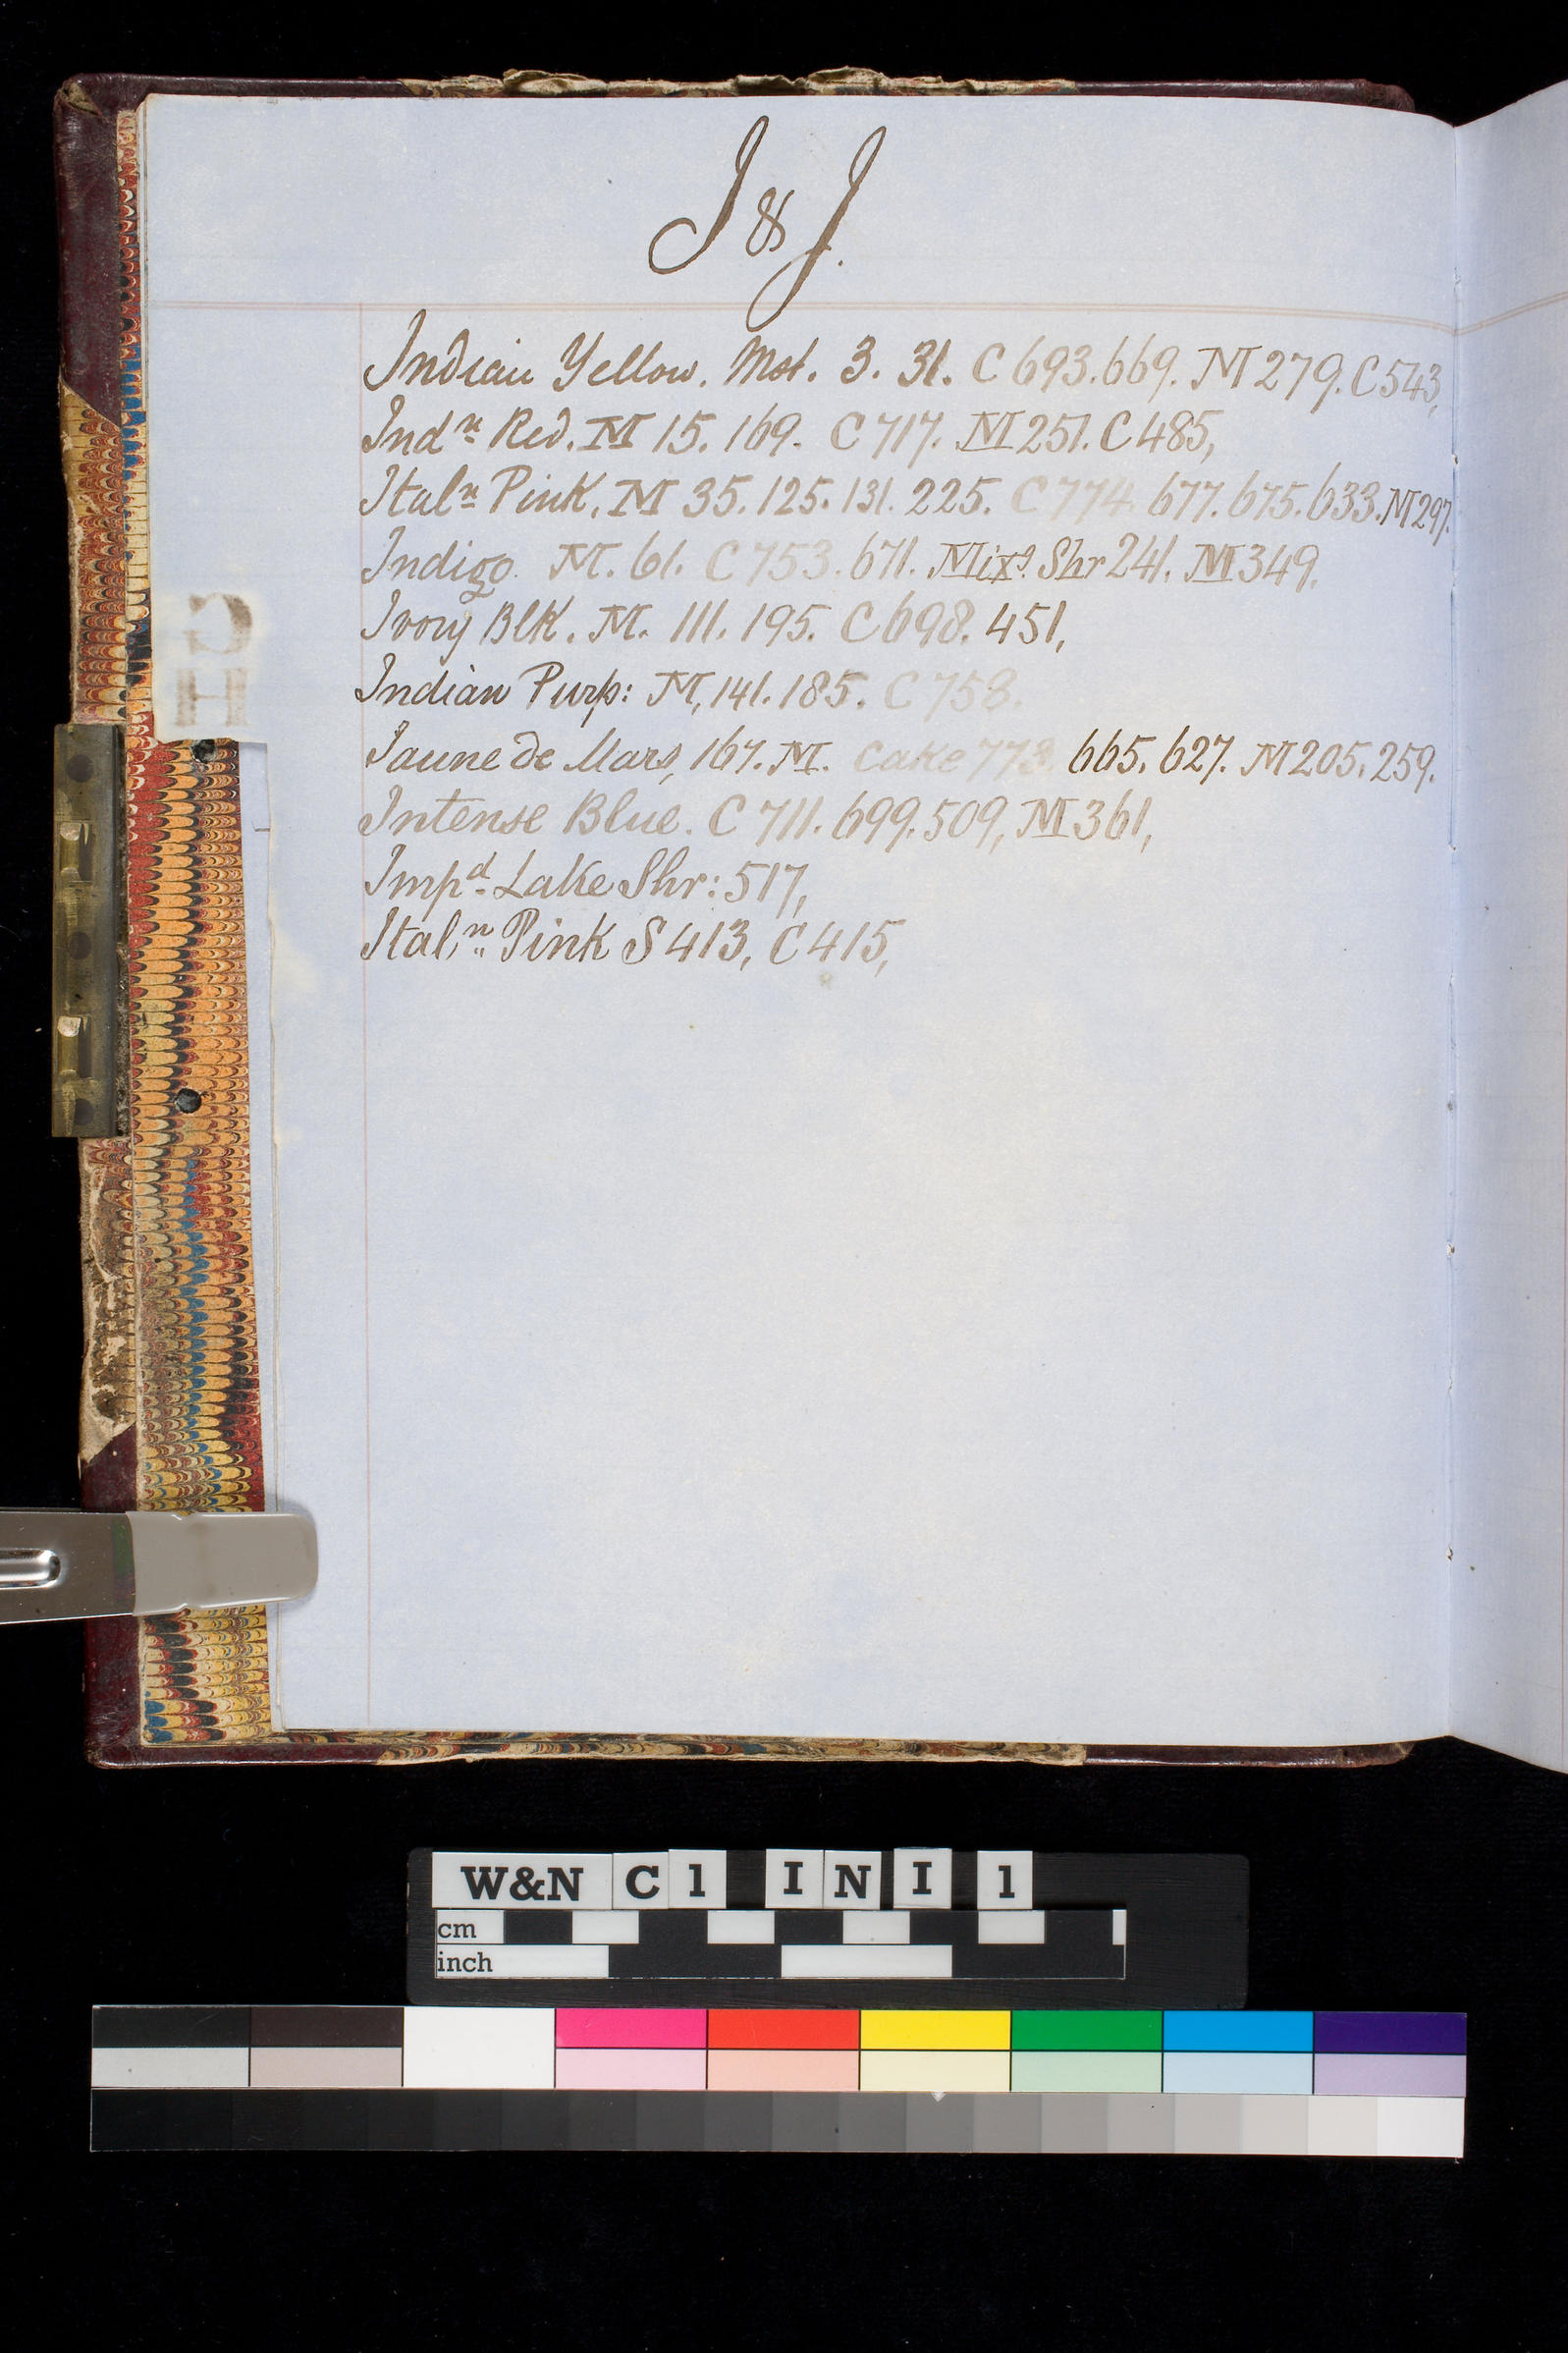 I & J.
Indian Yellow. Mst. 3. 31. C 693. 669. M 279. C 543,
Indⁿ Red. M 15. 169. C 717. M 251. C 485,
Italⁿ Pink. M 35. 125. 131. 225. C 774. 677. 675. 633. M 297.
Indigo. M. 61. C 753. 671. Mixᵍ. Shr 241. M 349.
Ivory Blk. M. 111. 195. C 698. 451,
Indian Purp: M, 141. 185. C 758.
Jaune de Mars, 167. M. Cake 773. 665. 627. M 205. 259.
Intense Blue. C 711. 699. 509, M 361,
Impᵈ. Lake Shr: 517,
Italⁿ Pink S 413, C 415,
GH
W&N C1 INI 1
cm
inch